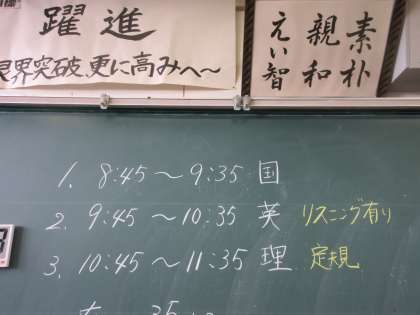 躍進
限界突破、更に高みへ〜
素朴
親和
えい智
1. 8:45 〜 9:35 国
2. 9:45 〜 10:35 英 リスニング有り
3. 10:45 〜 11:35 理 定規